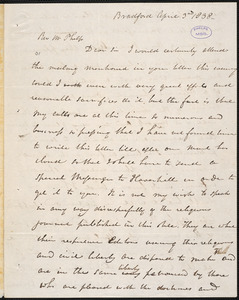 Bradford April 3rd 1838.
Rev Mr Phelps
Dear Sir I would certainly attend
the meeting mentioned in your letter this evening
could I with even with very great effort and
reasonable sacrifice do it but the fact is that
my calls are at this time so numerous and
business so pressing that I have not found time
to write this letter till after our mail has
closed so that I shall have to send a
special Messenger to Haverhill in order to
get it to you. It is not my wish to speak
in any way disrespectfully of the religious
journals published in this State. They are what
their respective Editors viewing their religious
and civil liberty are disposed to make them
and are in the same liberty patronized by those
who are pleased with the doctrines and